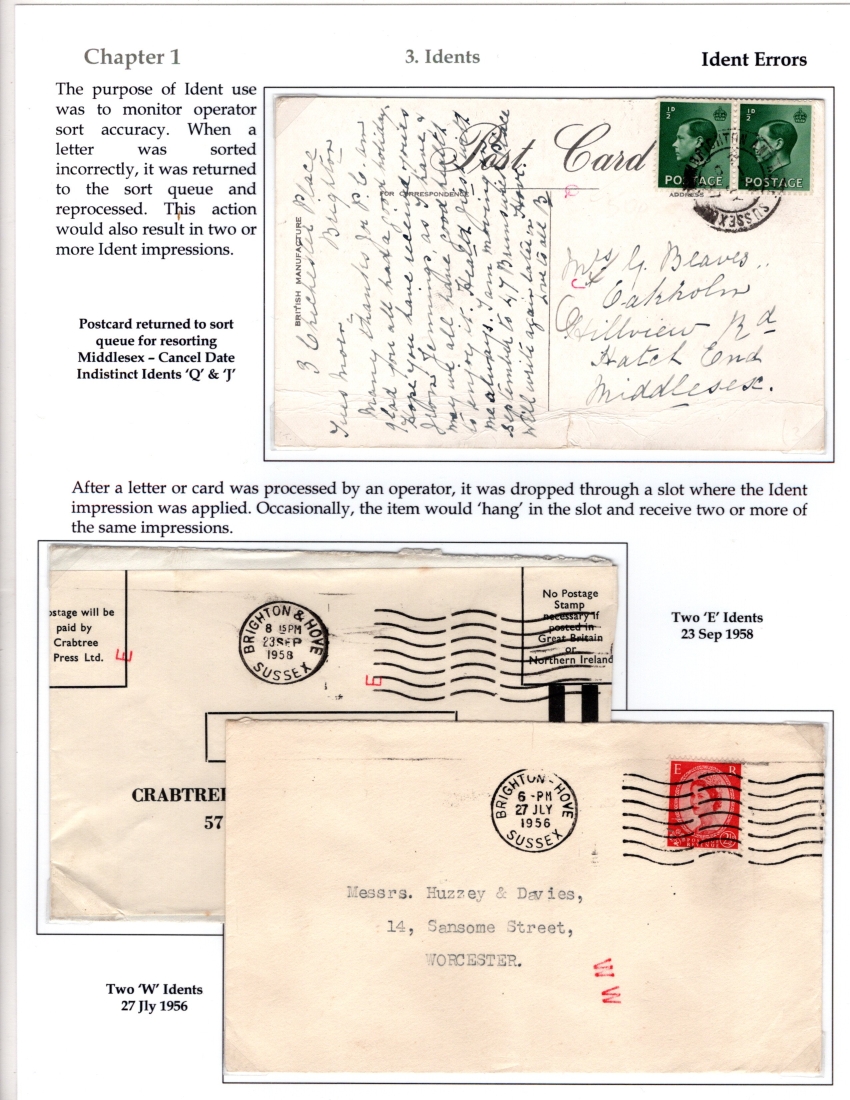 Chapter 1
3. Idents
Ident Errors
The purpose of Ident use
was to monitor operator
sort accuracy. When a
letter was sorted
incorrectly, it was returned
to the sort queue and
reprocessed. This action
would also result in two or
more Ident impressions.
Postcard returned to sort
queue for resorting
Middlesex – Cancel Date
Indistinct Idents 'Q' & 'J'
Post Card
FOR CORRESPONDENCE
ADDRESS
BRITISH MANUFACTURE
½D
POSTAGE
½D
POSTAGE
SUSSEX
3 Chichester Place
Brighton
Many thanks for P.C. am
glad you all had a good holiday.
Hope you have received yours
from Jennings as I have &
may we all have good health
to enjoy it.
me always. I am moving
September to 47 Brunswick Place
Hove
will write again later
Love to all B
Mrs G. Beaves..
Oakholm
Hillview Rd
Hatch End
Middlesex.
After a letter or card was processed by an operator, it was dropped through a slot where the Ident
impression was applied. Occasionally, the item would 'hang' in the slot and receive two or more of
the same impressions.
ostage will be
paid by
Crabtree
Press Ltd.
E
BRIGHTON & HOVE
8 15PM
23SEP
1958
SUSSEX
E
No Postage
Stamp
necessary if
posted in
Great Britain
or
Northern Ireland
CRABTREE
57
Two 'E' Idents
23 Sep 1958
BRIGHTON - HOVE
6 -PM
27 JLY
1956
SUSSEX
E R
2½
Messrs. Huzzey & Davies,
14, Sansome Street,
WORCESTER.
W W
Two 'W' Idents
27 Jly 1956